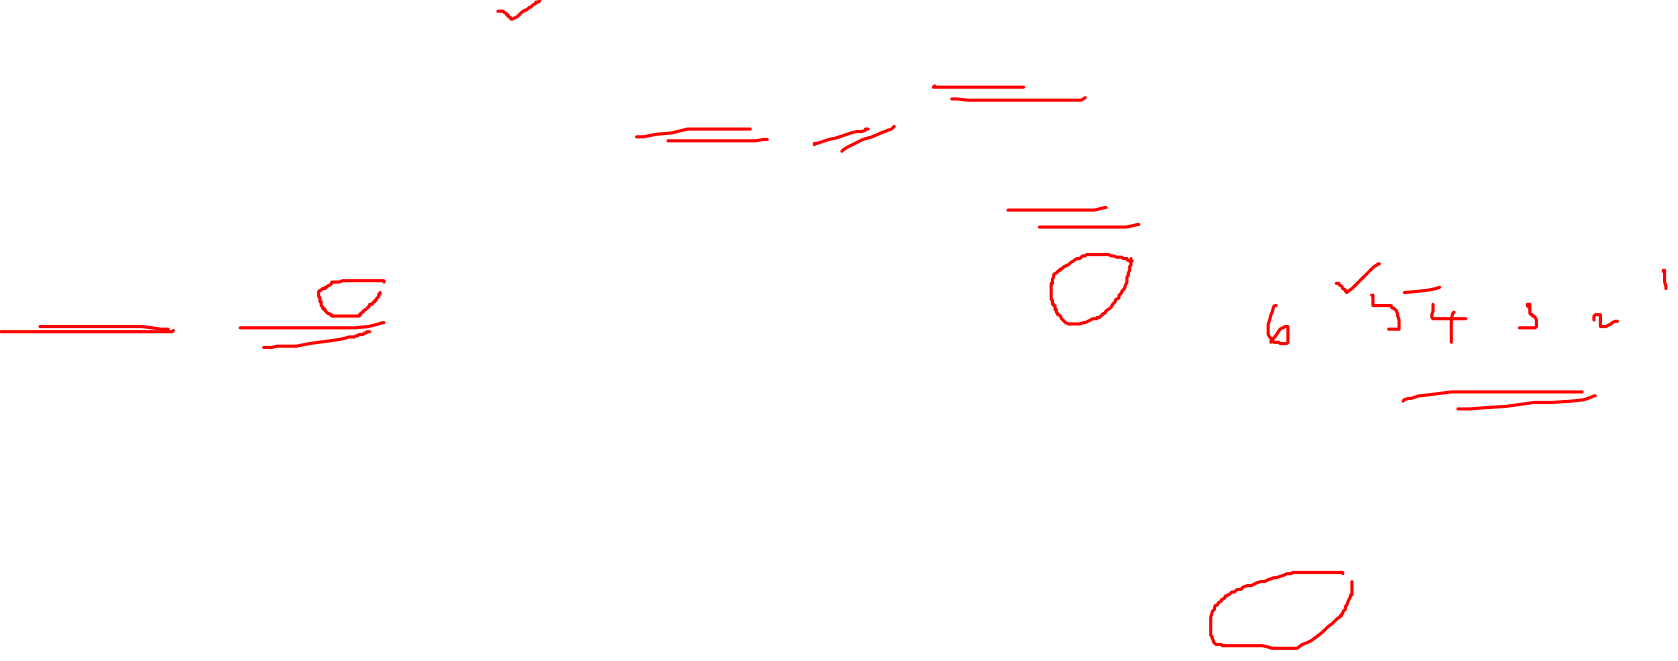 6 5 4 3 2 1